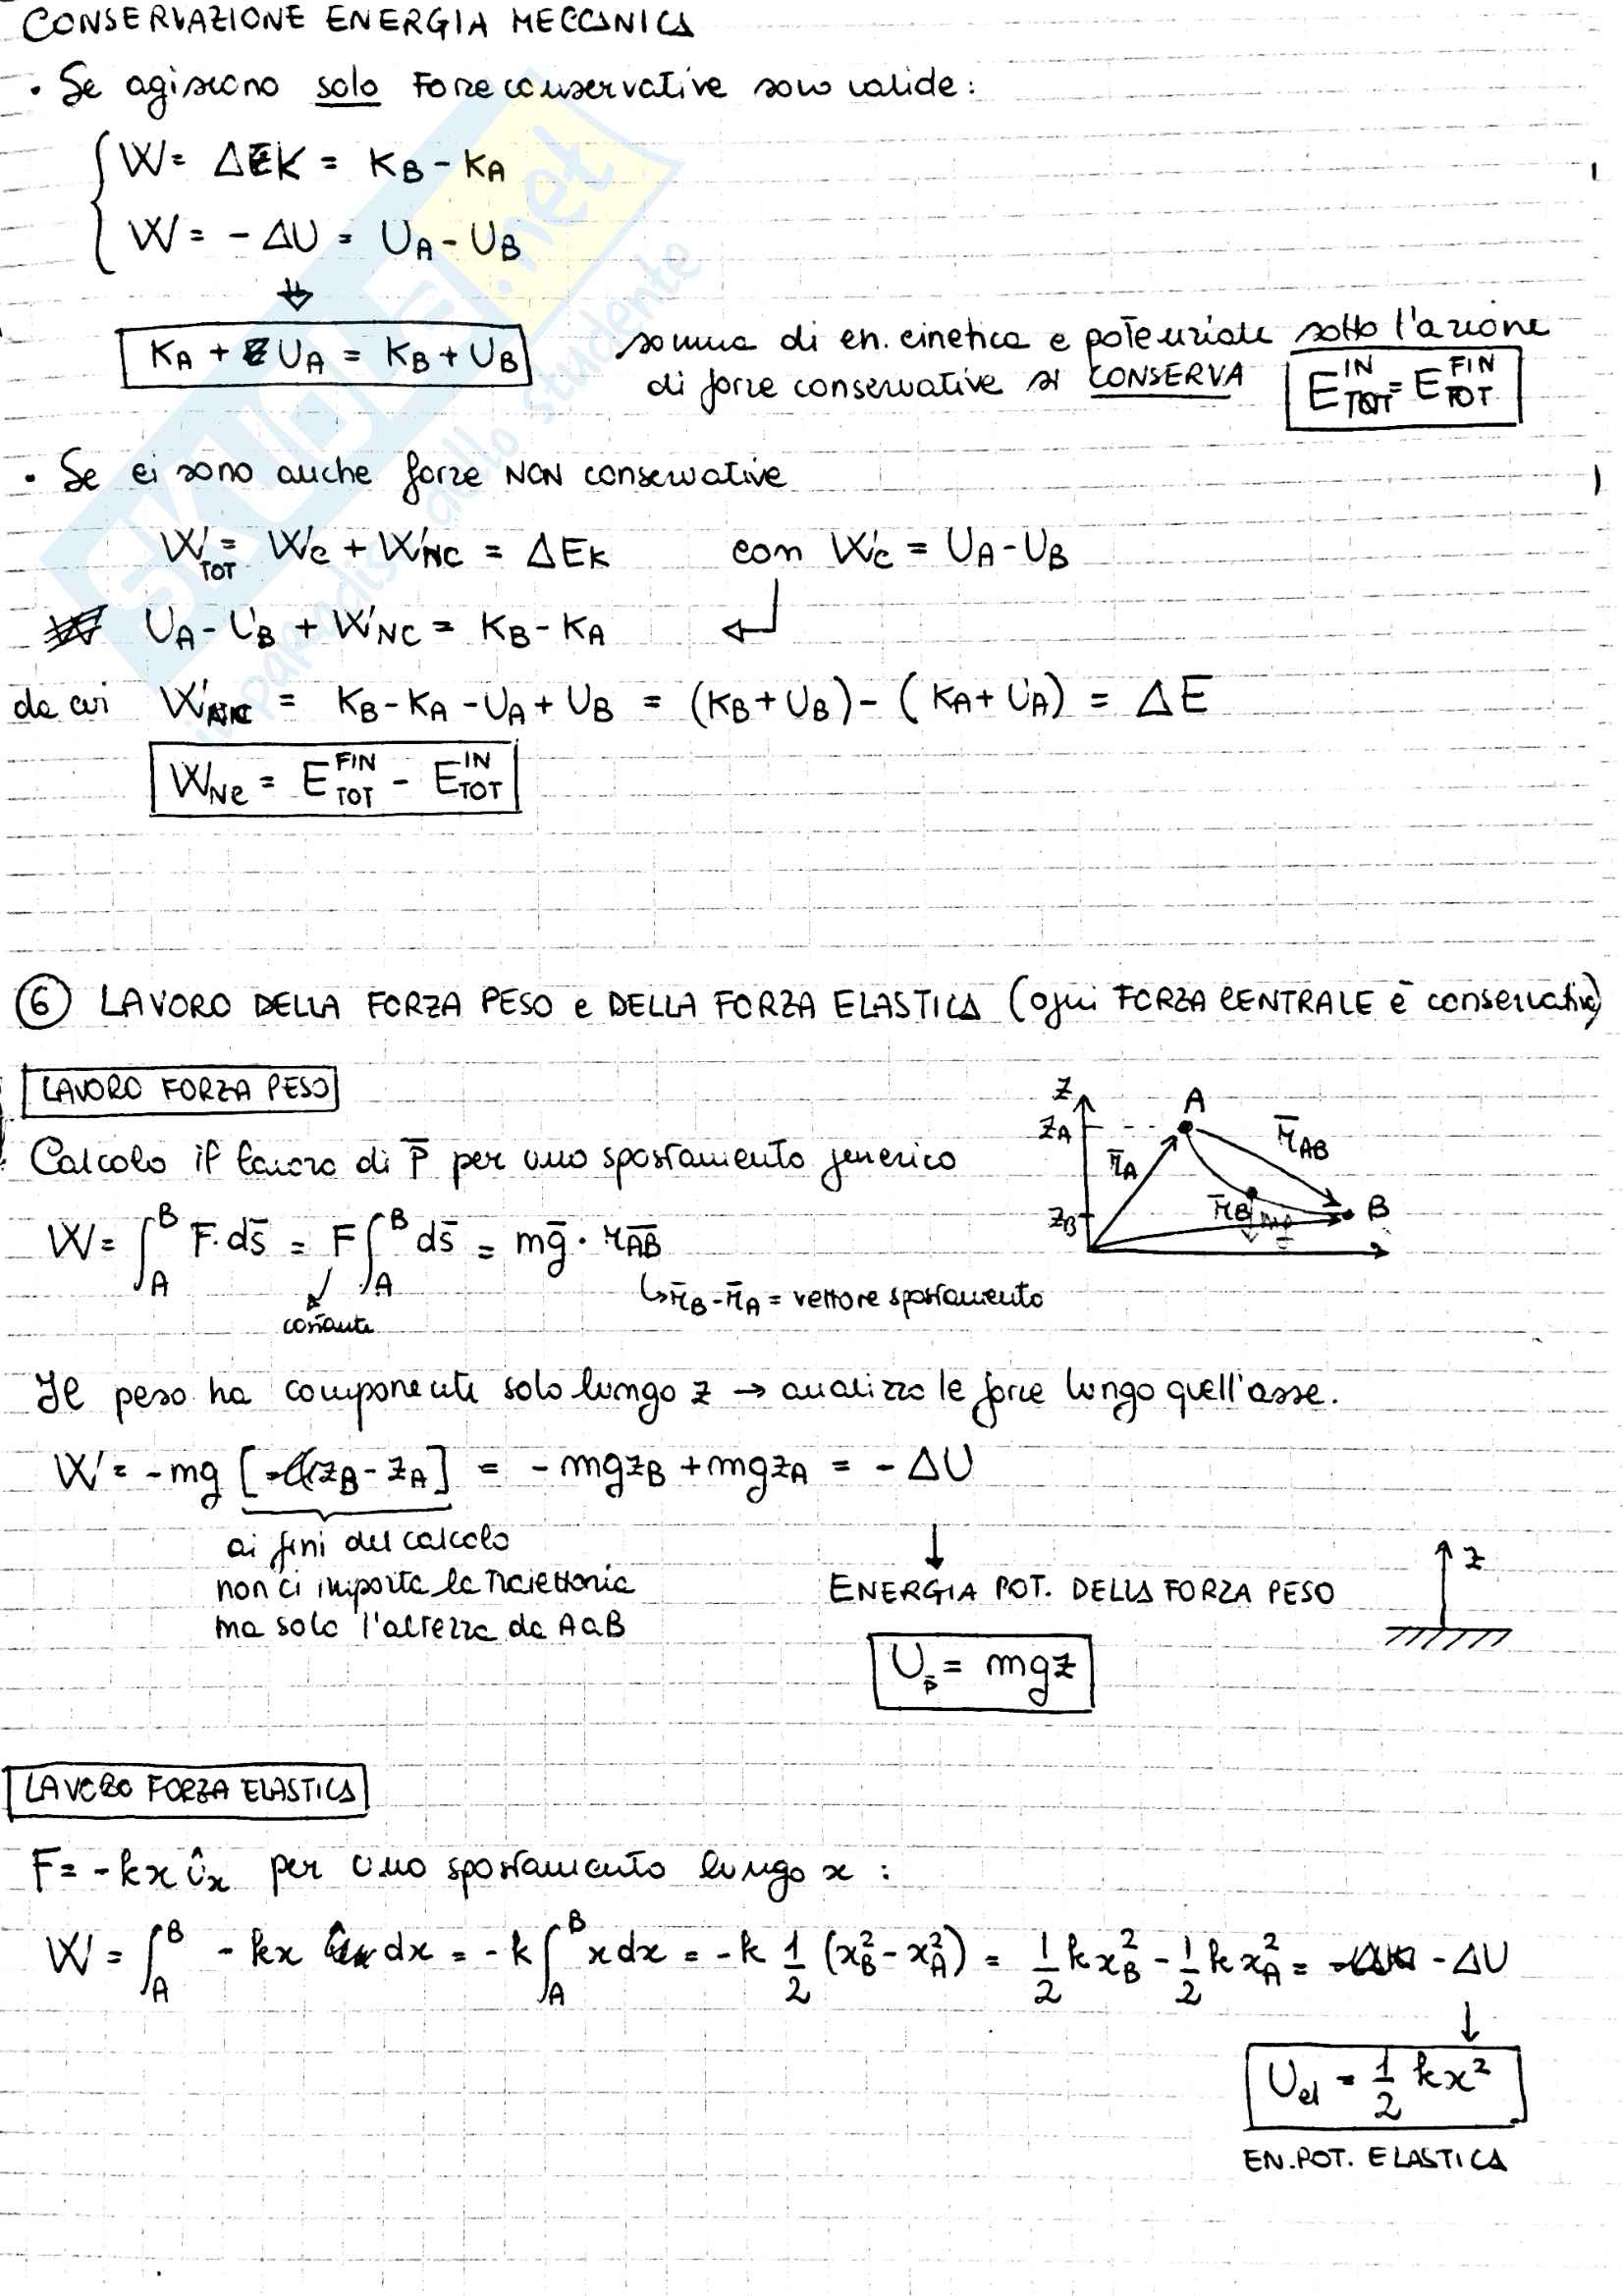 CONSERVAZIONE ENERGIA MECCANICA
• Se agiscono solo Forze conservative sono valide:
W = ΔEK = KB - KA
W = - ΔU = UA - UB
⇓
KA + UA = KB + UB
somma di en. cinetica e potenziale sotto l'azione
di forze conservative si CONSERVA
E TOT IN = E TOT FIN
• Se ci sono anche forze NON conservative
W TOT = Wc + WNC = ΔEK con Wc = UA - UB
UA - UB + WNC = KB - KA
da cui WNC = KB - KA - UA + UB = (KB + UB) - (KA + UA) = ΔE
WNC = E TOT FIN - E TOT IN
⑥ LAVORO DELLA FORZA PESO e DELLA FORZA ELASTICA (ogni FORZA CENTRALE è conservativa)
LAVORO FORZA PESO
Z
A
ZA
r̄A
r̄AB
r̄B
B
ZB
Calcolo il lavoro di P̄ per uno spostamento generico
W = ∫_A^B F · ds̄ = F ∫_A^B ds̄ = mḡ · r AB
costante
↳ r̄B - r̄A = vettore spostamento
Il peso ha componente solo lungo z → analizzo le forze lungo quell'asse.
W = -mg [zB - zA] = - mgzB + mgzA = - ΔU
ai fini del calcolo
non ci importa la traiettoria
ma solo l'altezza da A a B
ENERGIA POT. DELLA FORZA PESO
z
Up̄ = mgz
LAVORO FORZA ELASTICA
F = - kx ûx per uno spostamento lungo x :
W = ∫_A^B - kx dx = - k ∫_A^B x dx = - k 1/2 (xB² - xA²) = 1/2 k xB² - 1/2 k xA² = - ΔU
Uel = 1/2 kx²
EN. POT. ELASTICA
SKUOLA.net
il paradiso dello studente